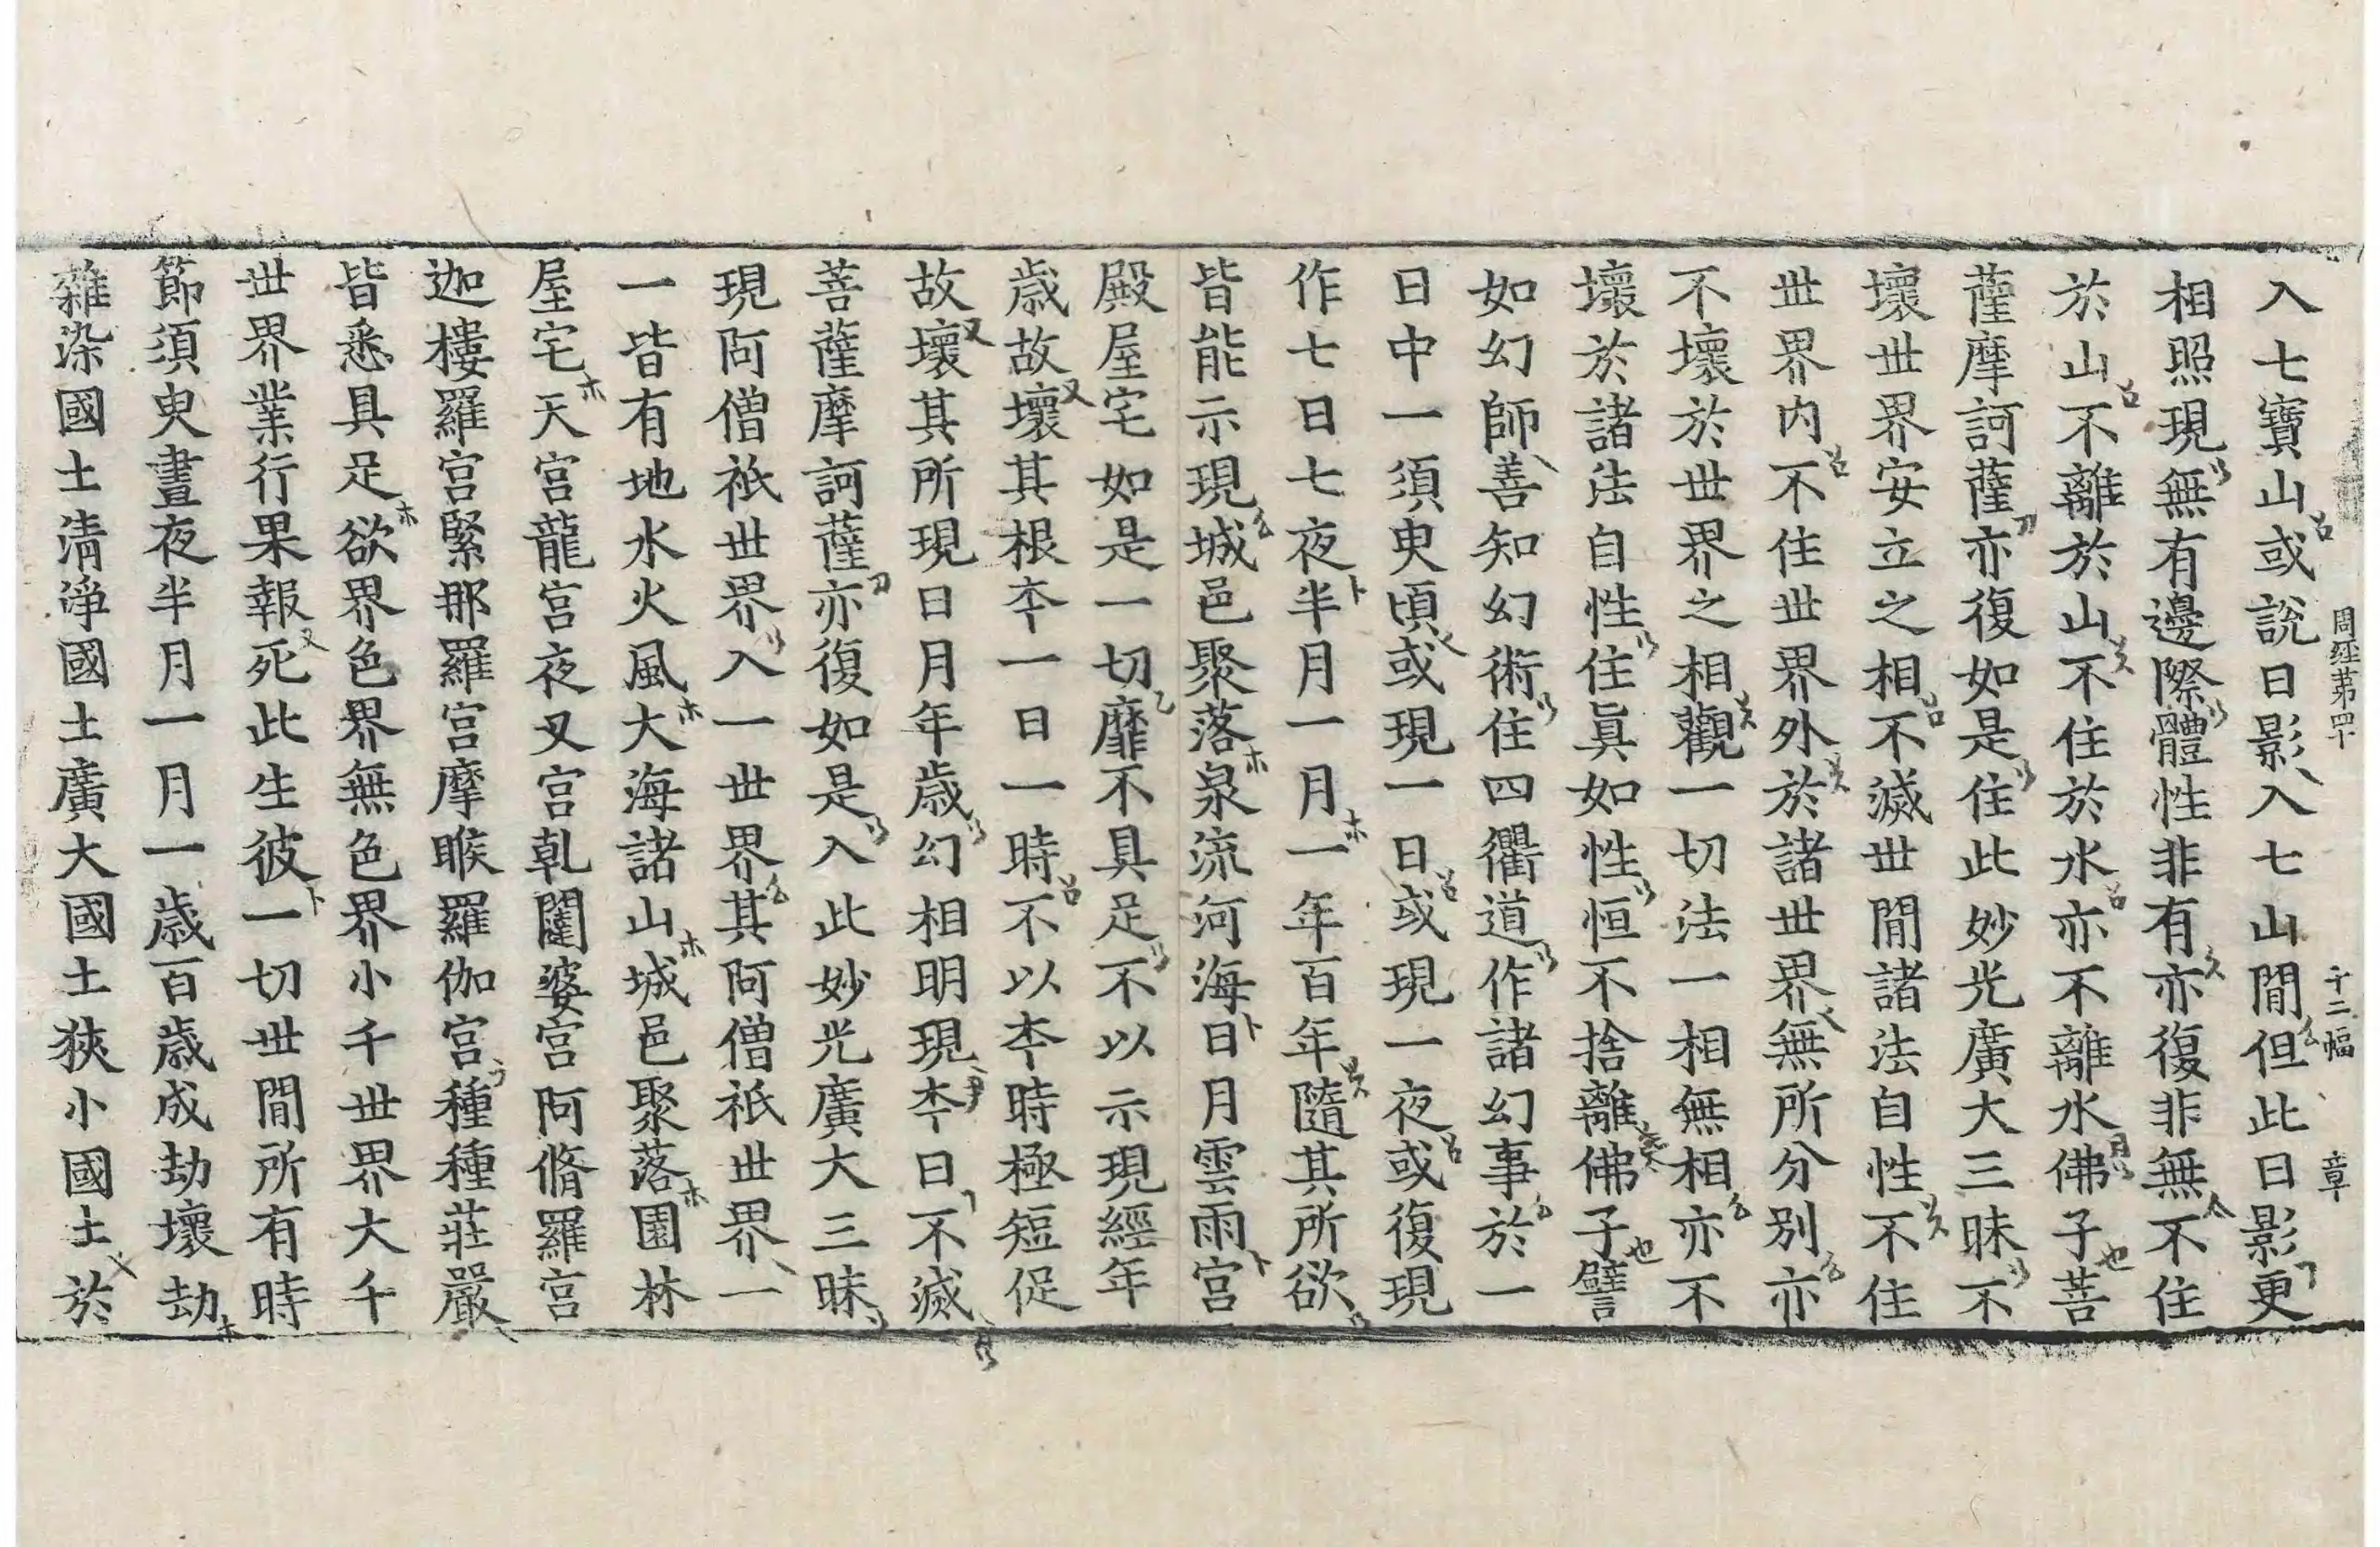 入七寶山或說日影入七山間但此日影更
相照現無有邊際體性非有亦復非無不住
於山不離於山不住於水亦不離水佛子菩
薩摩訶薩亦復如是住此妙光廣大三昧不
壞世界安立之相不滅世間諸法自性不住
世界内不住世界外於諸世界無所分別亦
不壞於世界之相觀一切法一相無相亦不
壞於諸法自性住眞如性恒不捨離佛子譬
如幻師善知幻術住四衢道作諸幻事於一
日中一須臾頃或現一日或現一夜或復現
作七日七夜半月一月一年百年隨其所欲
皆能示現城邑聚落泉流河海日月雲雨宮
殿屋宅如是一切靡不具足不以示現經年
歲故壞其根本一日一時不以本時極短促
故壞其所現日月年歲幻相明現本日不滅
菩薩摩訶薩亦復如是入此妙光廣大三昧
現阿僧祇世界入一世界其阿僧祇世界一
一皆有地水火風大海諸山城邑聚落園林
屋宅天宮龍宮夜叉宮乹闥婆宮阿脩羅宮
迦樓羅宮緊那羅宮摩睺羅伽宮種種莊嚴
皆悉具足欲界色界無色界小千世界大千
世界業行果報死此生彼一切世間所有時
節須臾晝夜半月一月一歲百歲成劫壞劫
雜染國土清淨國土廣大國土狹小國土於
周經第四十
十二幅
章